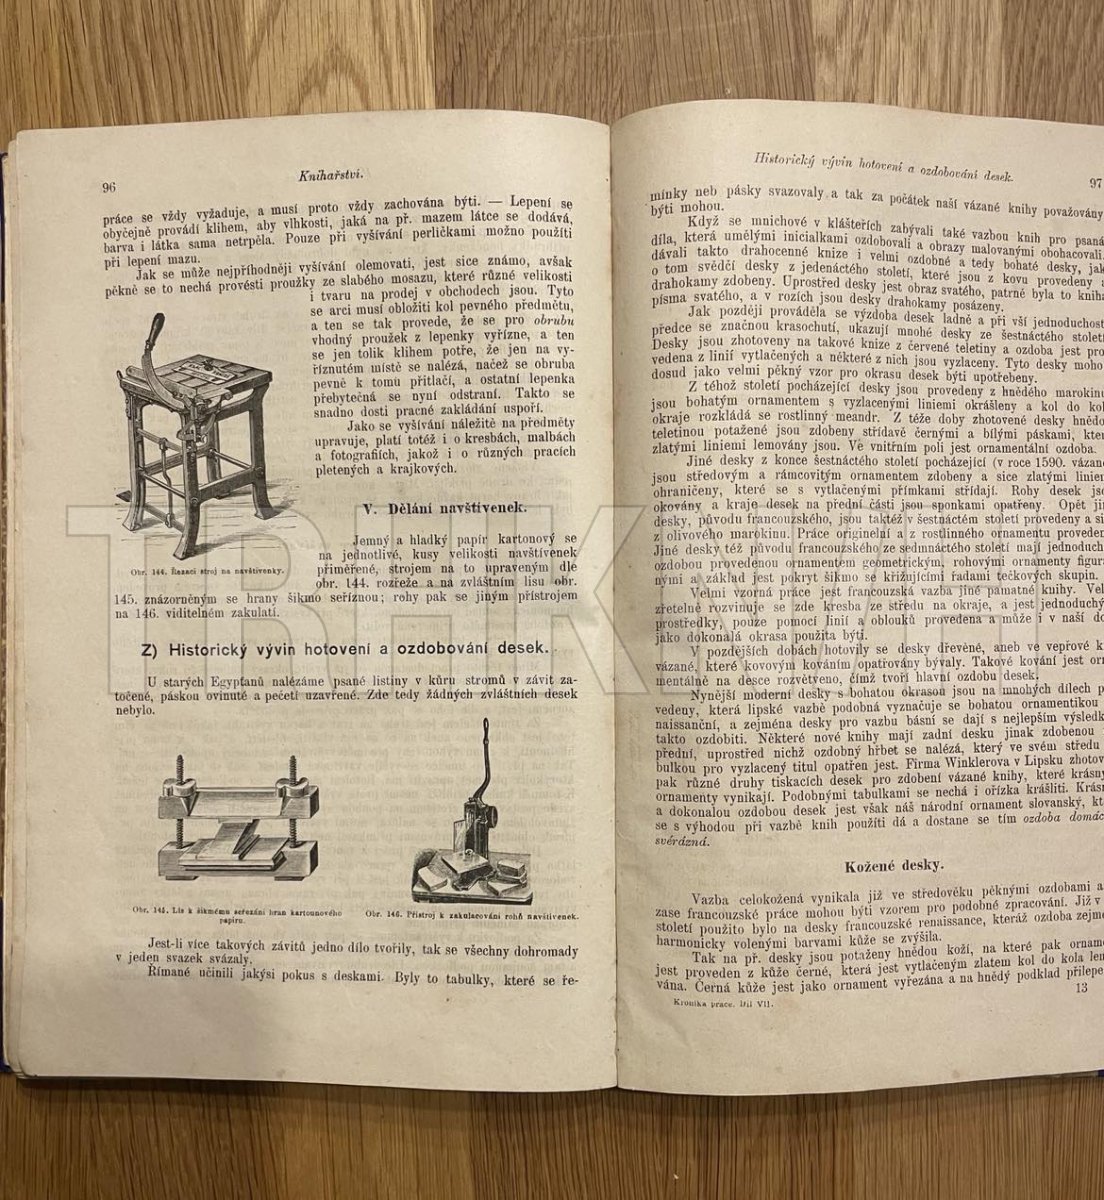 96
Knihařství.
práce se vždy vyžaduje, a musí proto vždy zachována býti. — Lepení se
obyčejně provádí klihem, aby vlhkosti, jaká na př. mazem látce se dodává,
barva i látka sama netrpěla. Pouze při vyšívání perličkami možno použíti
při lepení mazu.
Jak se může nejpříhodněji vyšívání olemovati, jest sice známo, avšak
pěkně se to nechá provésti proužky ze slabého mosazu, které různé velikosti
i tvaru na prodej v obchodech jsou. Tyto
se arci musí obložiti kol pevného předmětu,
a ten se tak provede, že se pro obrubu
vhodný proužek z lepenky vyřízne, a ten
se jen tolik klihem potře, že jen na vy-
říznutém místě se nalézá, načež se obruba
pevně k tomu přitlačí, a ostatní lepenka
přebytečná se nyní odstraní. Takto se
snadno dosti pracné zakládání uspoří.
Jako se vyšívání náležitě na předměty
upravuje, platí totéž i o kresbách, malbách
a fotografiích, jakož i o různých pracích
pletených a krajkových.
Obr. 144. Řezací stroj na navštívenky.
V. Dělání navštívenek.
Jemný a hladký papír kartonový se
na jednotlivé, kusy velikosti navštívenek
přiměřené, strojem na to upraveným dle
obr. 144. rozřeže a na zvláštním lisu obr.
145. znázorněným se hrany šikmo seříznou; rohy pak se jiným přístrojem
na 146. viditelném zakulatí.
Z) Historický vývin hotovení a ozdobování desek.
U starých Egypťanů nalézáme psané listiny v kůru stromů v závit za-
točené, páskou ovinuté a pečetí uzavřené. Zde tedy žádných zvláštních desek
nebylo.
Obr. 145. Lis k šikmému seřezání hran kartounového
papíru.
Obr. 146. Přístroj k zakulacování rohů navštívenek.
Jest-li více takových závitů jedno dílo tvořily, tak se všechny dohromady
v jeden svazek svázaly.
Římané učinili jakýsi pokus s deskami. Byly to tabulky, které se ře-
Historický vývin hotovení a ozdobování desek.
97
mínky neb pásky svazovaly a tak za počátek naší vázané knihy považovány
býti mohou.
Když se mnichové v klášteřích zabývali také vazbou knih pro psaná
díla, která umělými inicialkami ozdobovali a obrazy malovanými obohacovali,
dávali takto drahocenné knize i velmi ozdobné a tedy bohaté desky, jak
o tom svědčí desky z jedenáctého století, které jsou z kovu provedeny a
drahokamy zdobeny. Uprostřed desky jest obraz svatého, patrně byla to kniha
písma svatého, a v rozích jsou desky drahokamy posázeny.
Jak později prováděla se výzdoba desek ladně a při vší jednoduchosti
předce se značnou krasochutí, ukazují mnohé desky ze šestnáctého století.
Desky jsou zhotoveny na takové knize z červené teletiny a ozdoba jest pro-
vedena z linií vytlačených a některé z nich jsou vyzlaceny. Tyto desky moho
dosud jako velmi pěkný vzor pro okrasu desek býti upotřebeny.
Z téhož století pocházející desky jsou provedeny z hnědého marokinu
jsou bohatým ornamentem s vyzlacenými liniemi okrášleny a kol do kol
okraje rozkládá se rostlinný meandr. Z téže doby zhotovené desky hnědo
teletinou potažené jsou zdobeny střídavě černými a bílými páskami, kte
zlatými liniemi lemovány jsou. Ve vnitřním poli jest ornamentální ozdoba.
Jiné desky z konce šestnáctého století pocházející (v roce 1590. vázané
jsou středovým a rámcovitým ornamentem zdobeny a sice zlatými liniem
ohraničeny, které se s vytlačenými přímkami střídají. Rohy desek jso
okovány a kraje desek na přední části jsou sponkami opatřeny. Opět jin
desky, původu francouzského, jsou taktéž v šestnáctém století provedeny a si
z olivového marokinu. Práce originelní a z rostlinného ornamentu proveden
Jiné desky též původu francouzského ze sedmnáctého století mají jednoduch
ozdobou provedenou ornamentem geometrickým, rohovými ornamenty figura
nými a základ jest pokryt šikmo se křižujícími řadami tečkových skupin.
Velmi vzorná práce jest francouzská vazba jiné památné knihy. Vel
zřetelně rozvinuje se zde kresba ze středu na okraje, a jest jednoduchý
prostředky, pouze pomocí linií a oblouků provedena a může i v naší do
jako dokonalá okrasa použita býti.
V pozdějších dobách hotovily se desky dřevěné, aneb ve vepřové k
vázané, které kovovým kováním opatřovány bývaly. Takové kování jest orn
mentálně na desce rozvětveno, čímž tvoří hlavní ozdobu desek.
Nynější moderní desky s bohatou okrasou jsou na mnohých dílech p
vedeny, která lipské vazbě podobná vyznačuje se bohatou ornamentikou
naissanční, a zejména desky pro vazbu básní se dají s nejlepším výsledk
takto ozdobiti. Některé nové knihy mají zadní desku jinak zdobenou
přední, uprostřed nichž ozdobný hřbet se nalézá, který ve svém středu
bulkou pro vyzlacený titul opatřen jest. Firma Winklerova v Lipsku zhotov
pak různé druhy tiskacích desek pro zdobení vázané knihy, které krásný
ornamenty vynikají. Podobnými tabulkami se nechá i ořízka krášliti. Krásn
a dokonalou ozdobou desek jest však náš národní ornament slovanský, kt
se s výhodou při vazbě knih použíti dá a dostane se tím ozdoba domác
svérázná.
Kožené desky.
Vazba celokožená vynikala již ve středověku pěknými ozdobami a
zase francouzské práce mohou býti vzorem pro podobné zpracování. Již v
století použito bylo na desky francouzské renaissance, kteráž ozdoba zejmé
harmonicky volenými barvami kůže se zvýšila.
Tak na př. desky jsou potaženy hnědou koží, na které pak ornamen
jest proveden z kůže černé, která jest vytlačeným zlatem kol do kola lem
vána. Černá kůže jest jako ornament vyřezána a na hnědý podklad přilepe
Kronika práce. Díl VII.
13